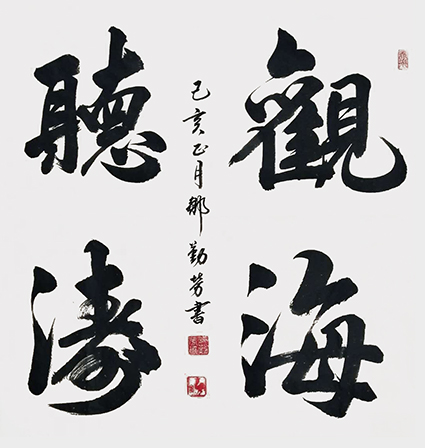 觀海
聽濤
己亥正月勤芳書